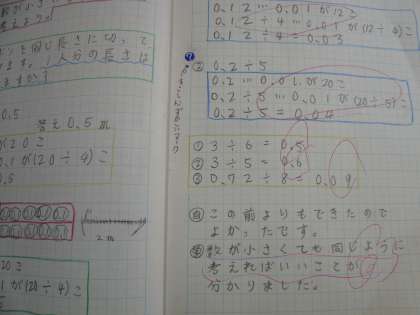 考えよう。
を同じ長さに切って
ます。1人分の長さは
ますか?
0.5
答え 0.5 m
が20こ
0.1が(20÷4)こ
0.5
2m
20こ
1が(20÷4)こ
0.12…0.01が12こ
0.12÷4…0.01が(12÷4)こ
0.12÷4=0.03
② 0.2÷5
0.2…0.01が20こ
0.2÷5…0.01が(20÷5)こ
0.2÷5=0.04
① 3÷6=0.5
② 3÷5=0.6
③ 0.72÷8=0.09
この前よりもできたので
よかったです。
数が小さくても同じように
考えればいいことが
分かりました。